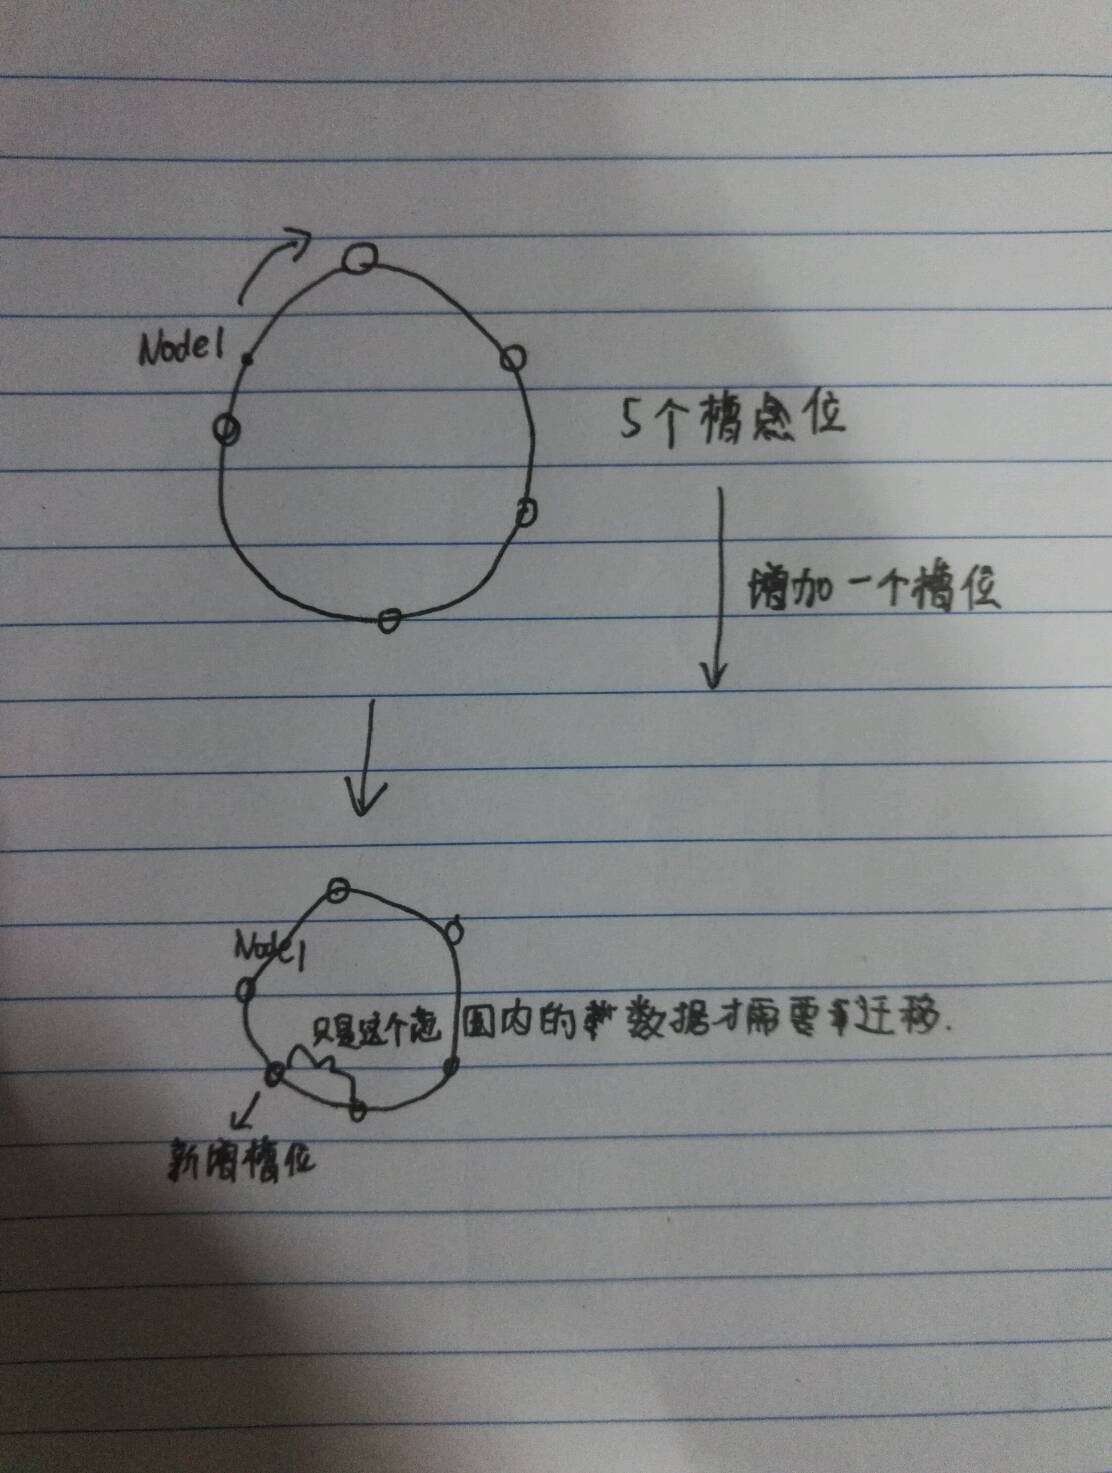 Node1
5个槽点位
增加一个槽位
Node1
只是这个范围内的数据才需要迁移.
新增槽位